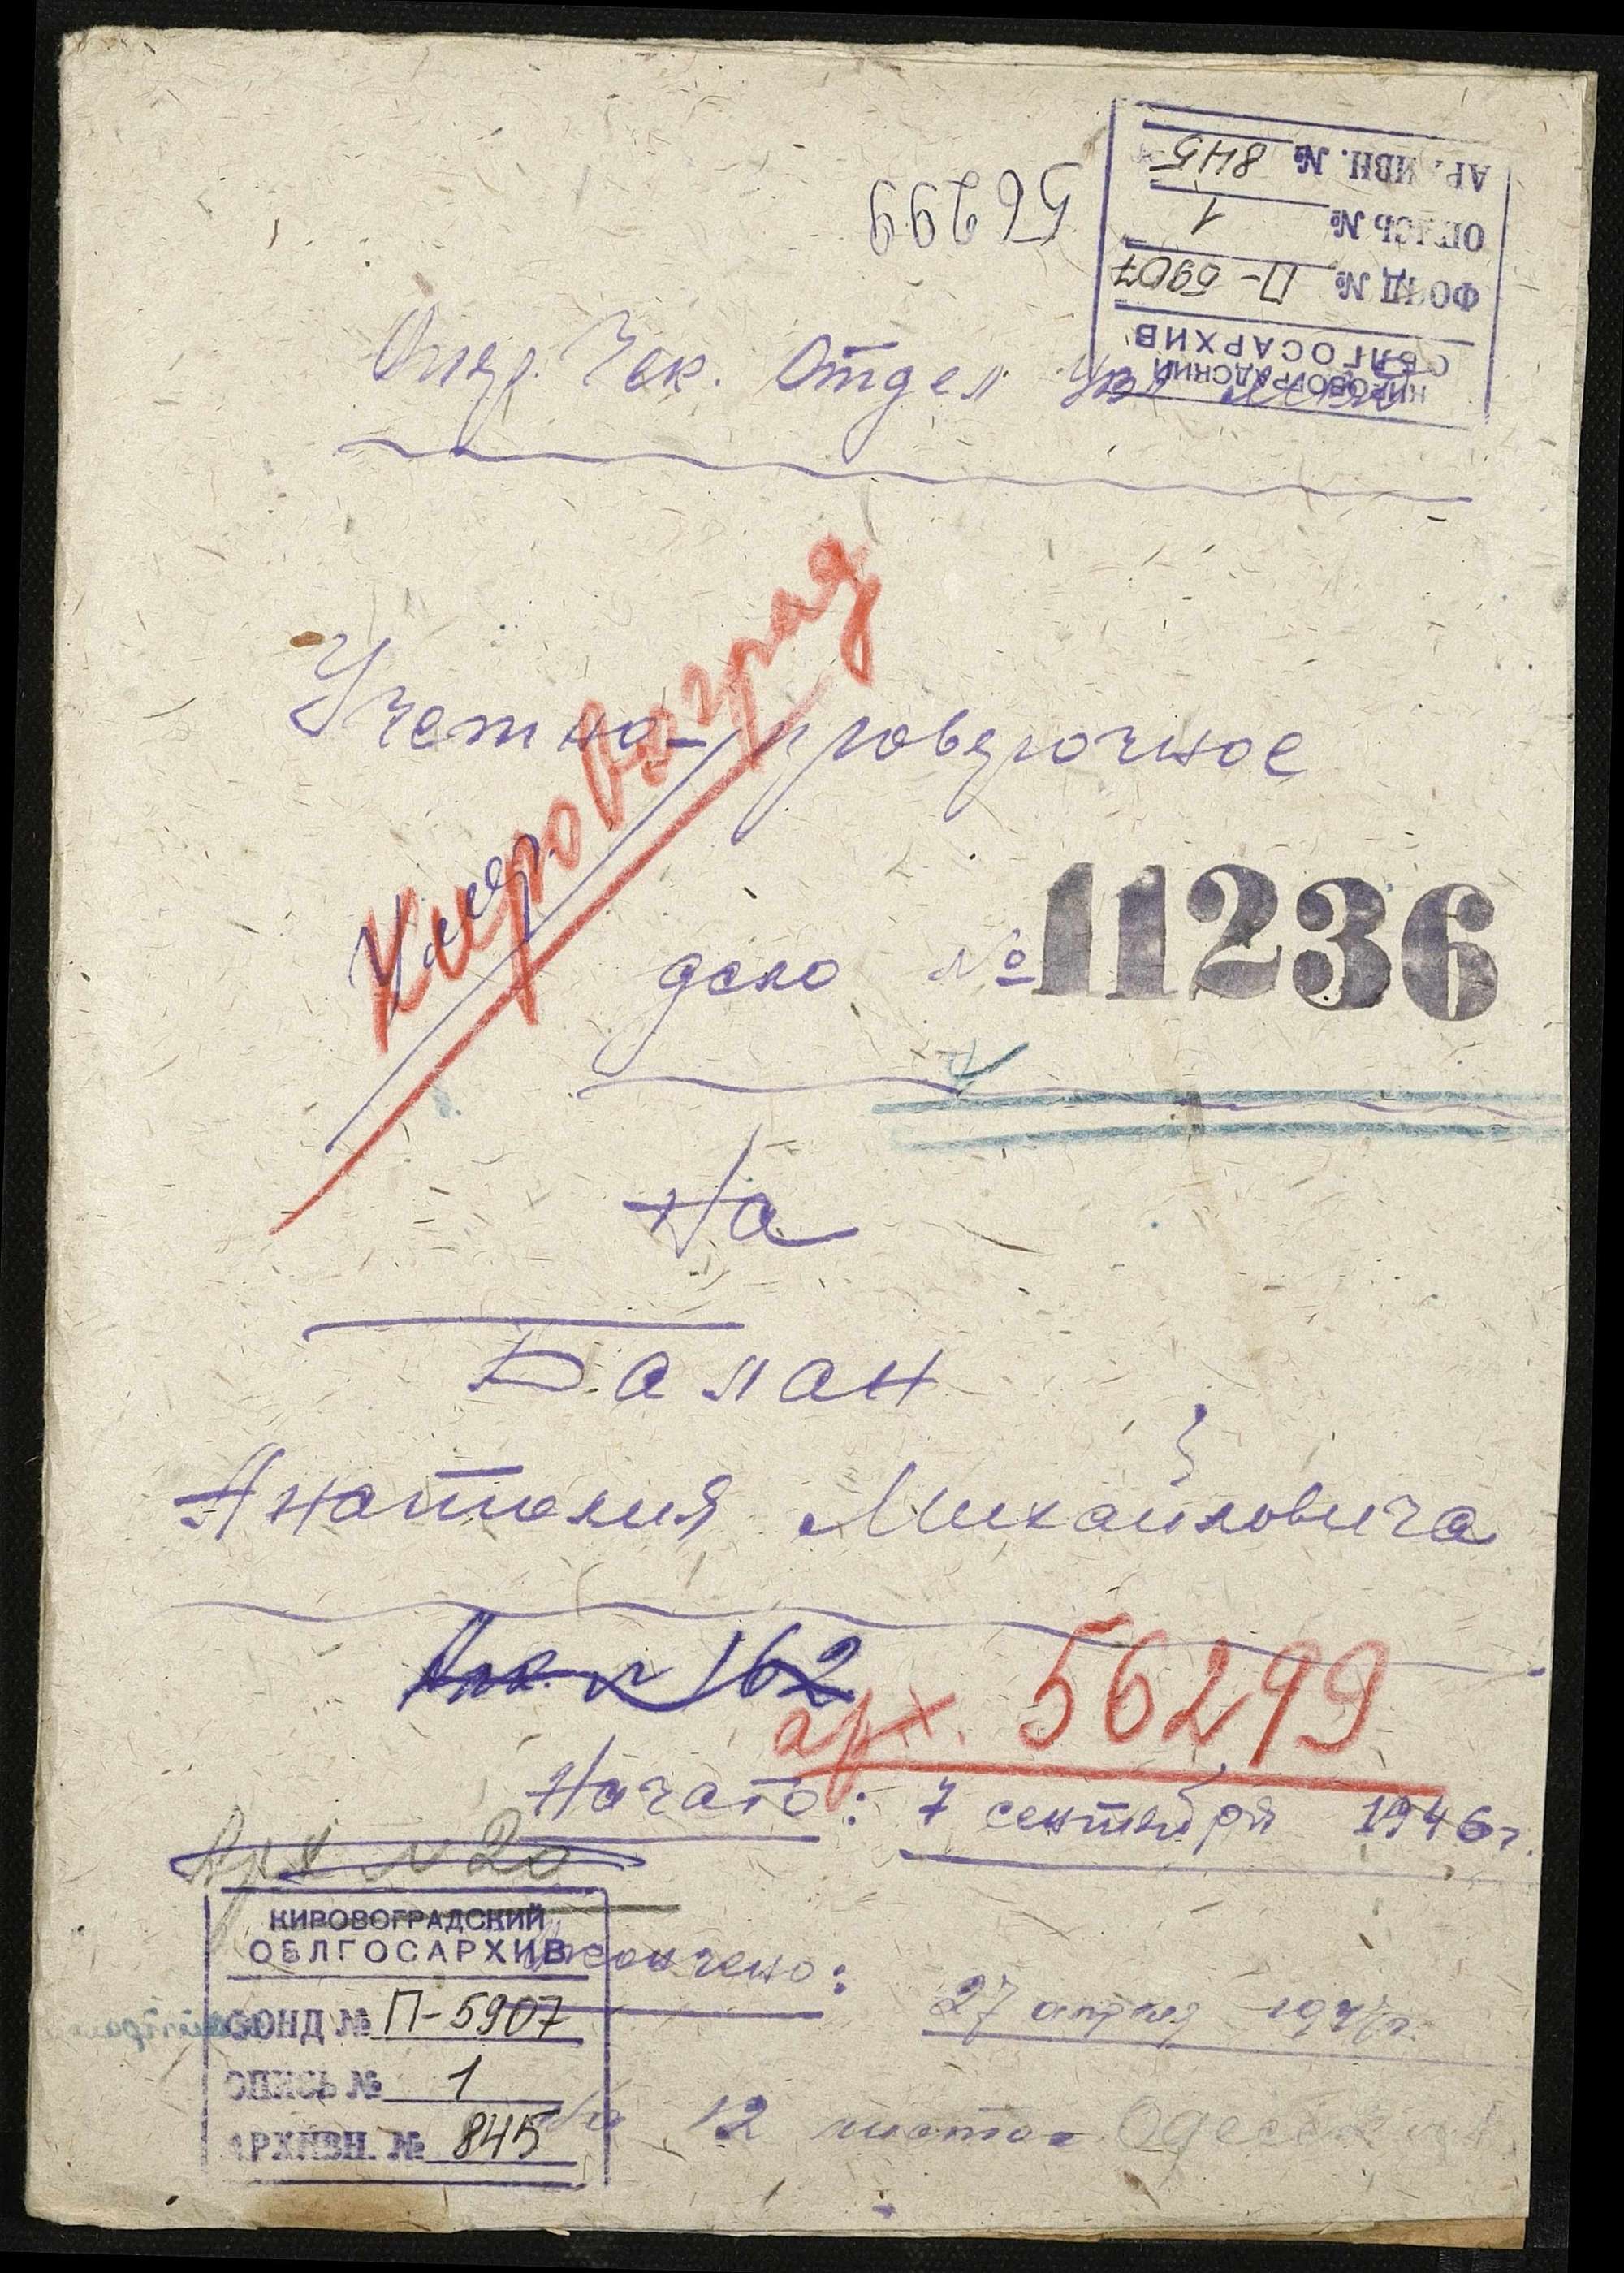 КИРОВОГРАДСКИЙ
ОБЛГОСАРХИВ
ФОНД № П-5907
ОПИСЬ № 1
АРХИВН. № 845
56299
Опер. Чек. Отдел
Учетно-проверочное
Кировоград
дело № 11236
На
Балан
Анатолия Михайловича
№ 162
арх. 56299
Начато: 7 сентября 1946 г.
Арх № 20
Окончено: 27 апреля 1947 г.
На 12 листах
КИРОВОГРАДСКИЙ
ОБЛГОСАРХИВ
ФОНД № П-5907
ОПИСЬ № 1
АРХИВН. № 845